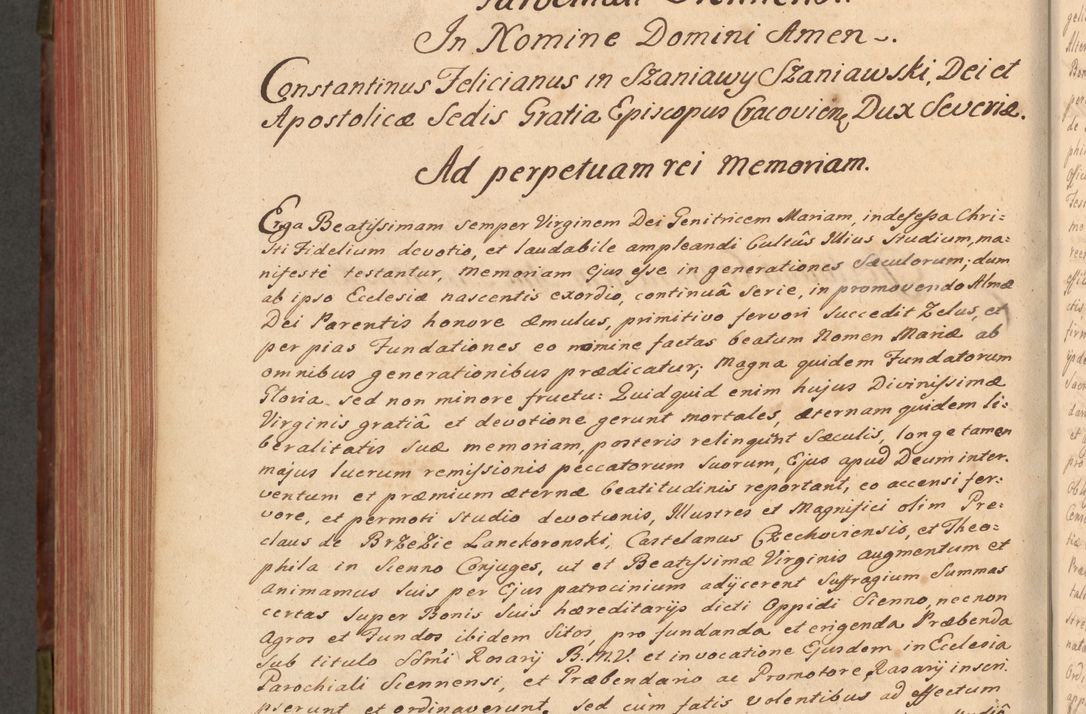 In Nomine Domini Amen.
Constantinus Felicianus in Szaniawy Szaniawski, Dei et
Apostolicæ Sedis Gratia Episcopus Cracovienę Dux Severiæ.
Ad perpetuam rei memoriam.
Erga Beatissimam semper Virginem Dei Genitricem Mariam, indefessa Chri:
sti Fidelium devotio, et laudabile ampleandi Cultûs Illius studium, ma:
nifestè testantur, memoriam Ejus esse in generationes sæculorum; dum
ab ipso Ecclesiæ nascentis exordio, continuâ serie, in promovendo Almæ
Dei Parentis honore æmulus, primitivo fervori succedit Zelus, et
per pias Fundationes eo nomine factas beatum Nomen Mariæ ab
omnibus generationibus prædicatur; Magna quidem Fundatorum
Gloria sed non minore fructu: Quidquid enim hujus Divinissimæ
Virginis gratiâ et devotione gerunt mortales, æternam quidem li:
beralitatis suæ memoriam, posteris relinqunt sæculis, longe tamen
majus lucrum remissionis peccatorum suorum, Ejus apud Deum inter:
ventum et præmium æternæ beatitudinis reportant, eo accensi fer:
vore, et permoti studio devotionis, Illustres et Magnifici olim Pre:
claus de Brzezie Lanckoronski, Castelanus Czechoviensis, et Theo:
phila in Sienno Conjuges, ut et Beatissimæ Virginis augmentum et
animamus suis per Ejus patrocinium adijcerent suffragium Summas
certas super Bonis suis hæreditarijs dicti Oppidi Sienno, necnon
Agros et Fundos ibidem sitos, pro fundanda et erigenda Præbenda
sub titulo SSmi Rosarij B.M.V. et invocatione Ejusdem in Ecclesia
Parochiali Siennensi, et Præbendario ac Promotore Rosarij inscri:
pserunt et ordinaverunt, sed cùm fatis volentibus ad effectum